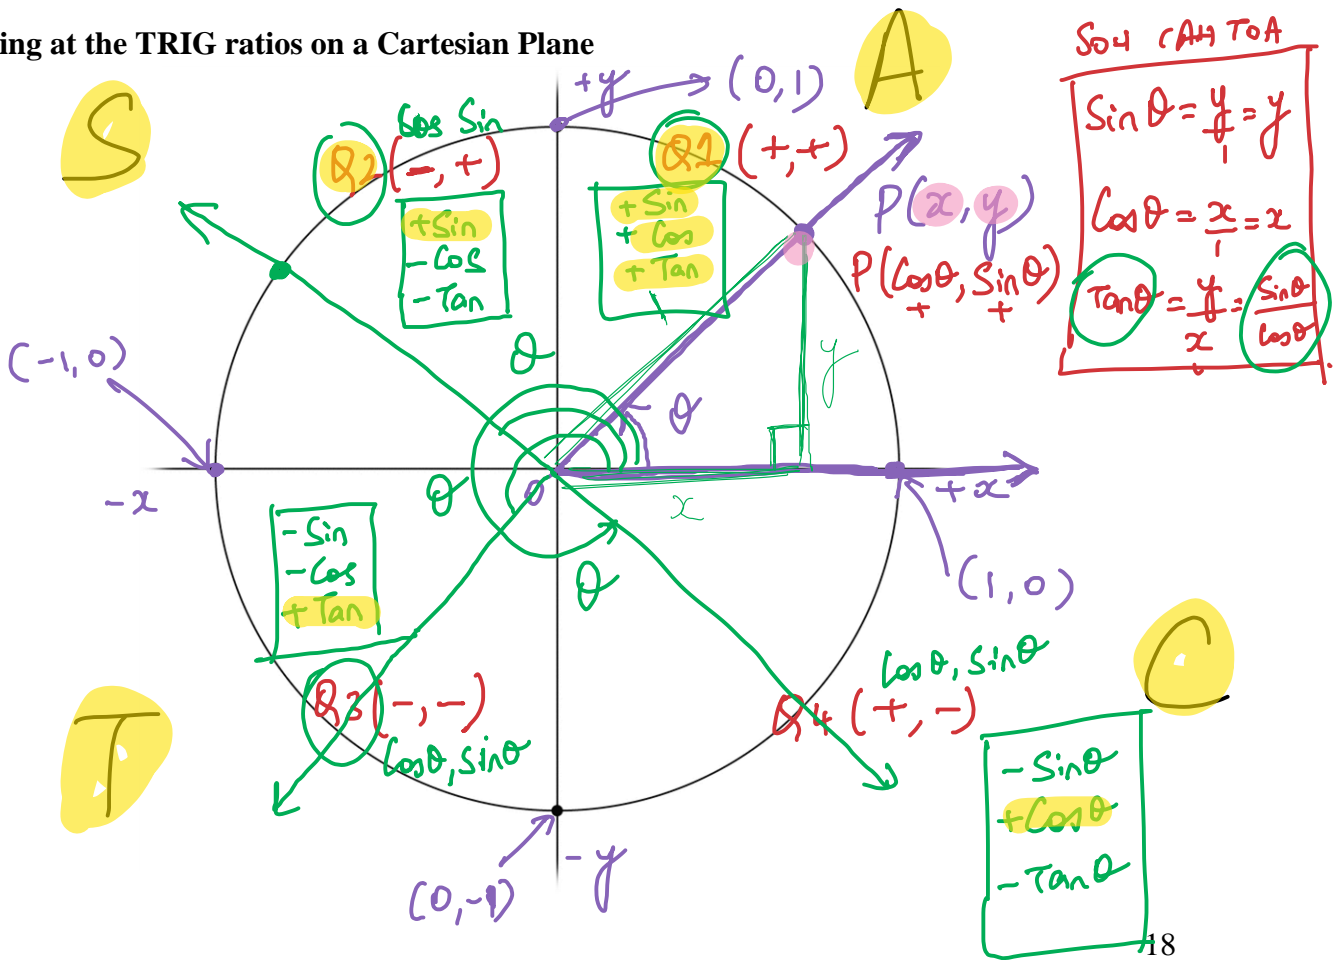 ing at the TRIG ratios on a Cartesian Plane
S
A
SOH CAH TOA
Sin θ = y/1 = y
Cos θ = x/1 = x
Tan θ = y/x = Sin θ/Cos θ
+y
(0,1)
Cos Sin
Q2 (-,+)
+Sin
-Cos
-Tan
Q1 (+,+)
+Sin
+Cos
+Tan
P(x,y)
P(Cosθ, Sinθ)
+ +
(-1,0)
-x
θ
θ
θ
θ
0
y
x
+x
(1,0)
-Sin
-Cos
+Tan
Q3 (-,-)
Cosθ, Sinθ
T
Cosθ, Sinθ
Q4 (+,-)
C
-Sinθ
+Cosθ
-Tanθ
(0,-1)
-y
18